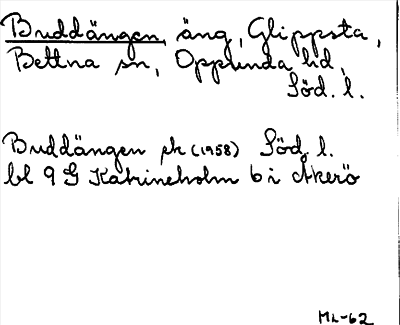 Buddängen, äng, Glippsta,
Bettna sn, Oppunda hd,
Söd. l.
Buddängen ek (1958) Söd. l.
bl 9 G Katrineholm 6 i Åkerö
ML-62